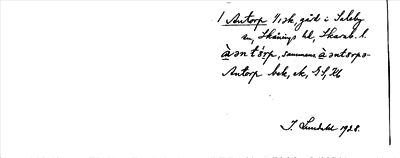 1 Antorp 1/1 sk, gård i Saleby
sn, Skånings hd, Skarab. l.
à an tórp, sammans à antorpa-
Antorp bek, ek,
I. Lundahl 1928.